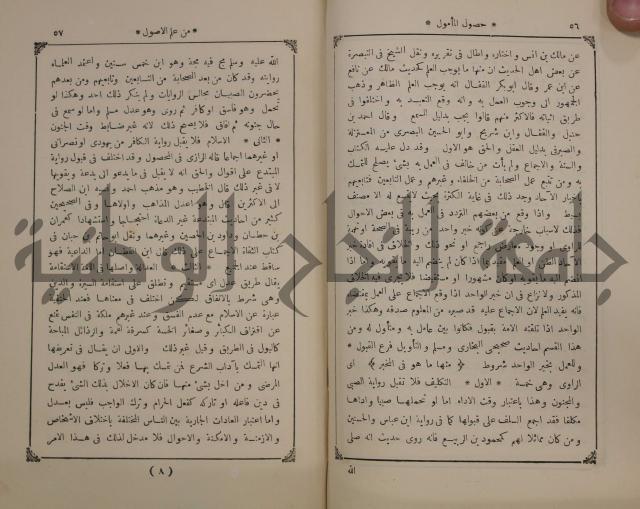 ٥٦
* حصول المأمول *
عن مالك بن انس واختاره واطال فى تقريره ونقل الشيخ فى التبصرة
عن بعض اهل الحديث ان منها ما يوجب العلم كحديث مالك عن نافع
عن ابن عمر وقال ابوبكر القفال انه يوجب العلم الظاهر وذهب
الجمهور الى وجوب العمل به وانه وقع التعبد به واختلفوا فى
طريق اثباته فالاكثر منهم قالوا يجب بدليل السمع وقال احمد بن
حنبل والقفال وابن شريح وابو الحسين البصرى من المعتزلة
والصيرفى بدليل العقل والحق هو الاول وقد دل عليه الكتاب
والسنة والاجماع ولم يأت من خالف فى العمل به بشئ يصلح للتمسك
به ومن تتبع عمل الصحابة من الخلفاء وغيرهم وعمل التابعين فتابعيهم
باخبار الآحاد وجد ذلك فى غاية الكثرة بحيث لا يتسع له الا مصنف
بسيط واذا وقع من بعضهم التردد فى العمل به فى بعض الاحوال
فذلك لاسباب خارجة عن كونه خبر واحد من ريبة فى الصحة اوتهمة
للراوى او وجود معارض راجح او نحو ذلك والخلاف فى افادة خبر
المذكور ولا نزاع فى ان خبر الواحد اذا وقع الاجماع على العمل بمقتضاه
فانه يفيد العلم لان الاجماع عليه قد صيره من المعلوم صدقه وهكذا خبر
الواحد اذا تلقته الامة بقبول فكانوا بين عامل به ومتأول له ومن
هذا القسم احاديث صحيحى البخارى ومسلم والتأويل فرع القبول *
وللعمل بخبر الواحد شروط ﴿ منها ما هو فى المخبر ﴾ اى
الراوى وهى خمسة * الاول * التكليف فلا تقبل رواية الصبى
والمجنون وهذا باعتبار وقت الاداء اما لو تحملها صبيا واداها
مكلفا فقد اجمع السلف على قبولها كما فى رواية ابن عباس والحسنين
ومن كان مماثلا لهم كمحمود بن الربيع فانه روى حديث انه صلى
الله
* من علم الاصول *
٥٧
الله عليه وسلم مج فيه مجة وهو ابن خمس سنين واعتمد العلماء
روايته وقد كان من بعد الصحابة من التابعين وتابعيهم ومن بعدهم
يحضرون الصبيان مجالس الروايات ولم ينكر ذلك احد وهكذا لو
تحمل وهو فاسق اوكافر ثم روى وهو عدل مسلم واما لو سمع فى
حال جنونه ثم افاق فلا يصح ذلك لانه غير ضابط وقت الجنون
* الثانى * الاسلام فلا يقبل رواية الكافر من يهودى اونصرانى
او غيرهما اجماعا قاله الرازى فى المحصول وقد اختلف فى قبول رواية
المبتدع على اقوال والحق انه لا يقبل فى ما يدعو الى بدعة ويقويها
لا فى غير ذلك قال الخطيب وهو مذهب احمد ونسبه ابن الصلاح
الى الاكثرين قال وهو اعدل المذاهب واولاها وفى الصحيحين
كثير من احاديث المبتدعة غير الدعاة احتجاجا واستشهادا كعمران
بن حطان وداود بن الحصين وغيرهما ونقل ابو حاتم بن حبان فى
كتاب الثقات الاجماع على ذلك قال ابن القطان اما الداعية فهو
ساقط عند الجميع * الثالث * العدالة واصلها فى اللغة الاستقامة
يقال طريق عدل اى مستقيم وتطلق على استقامة السيرة والدين
وهى شرط بالاتفاق لكن اختلف فى معناها فعند الحنفية
عبارة عن الاسلام مع عدم الفسق وعند غيرهم ملكة فى النفس تمنع
عن اقتراف الكبائر وصغائر الخسة كسرقة لقمة والرذائل المباحة
كالبول فى الطريق وقيل غير ذلك والاولى ان يقال فى تعريفها
انها التمسك بآداب الشرع فمن تمسك بها فعلا وتركا فهو العدل
المرضى ومن اخل بشئ منها فان كان الاخلال بذلك الشئ يقدح
فى دين فاعله او تاركه كفعل الحرام وترك الواجب فليس بعدل
واما اعتبار العادات الجارية بين الناس المختلفة باختلاف الاشخاص
والازمنة والامكنة والاحوال فلا مدخل لذلك فى هذا الامر
( ٨ )